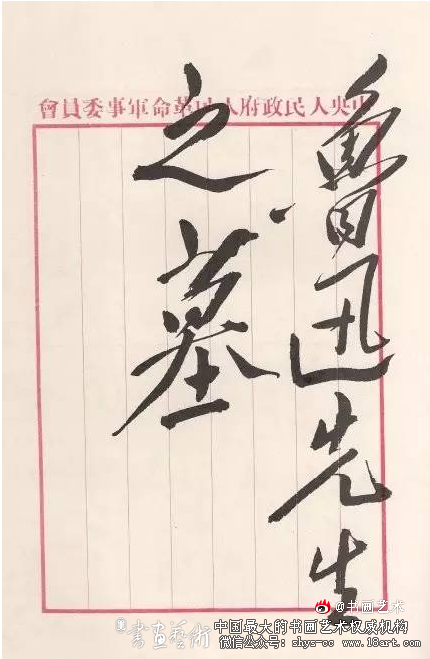 中央人民政府人民革命軍事委員會
魯迅先生
之墓
@书画艺术
書画藝術
中国最大的书画艺术权威机构
微信公众号: shys-cc www.18art.com